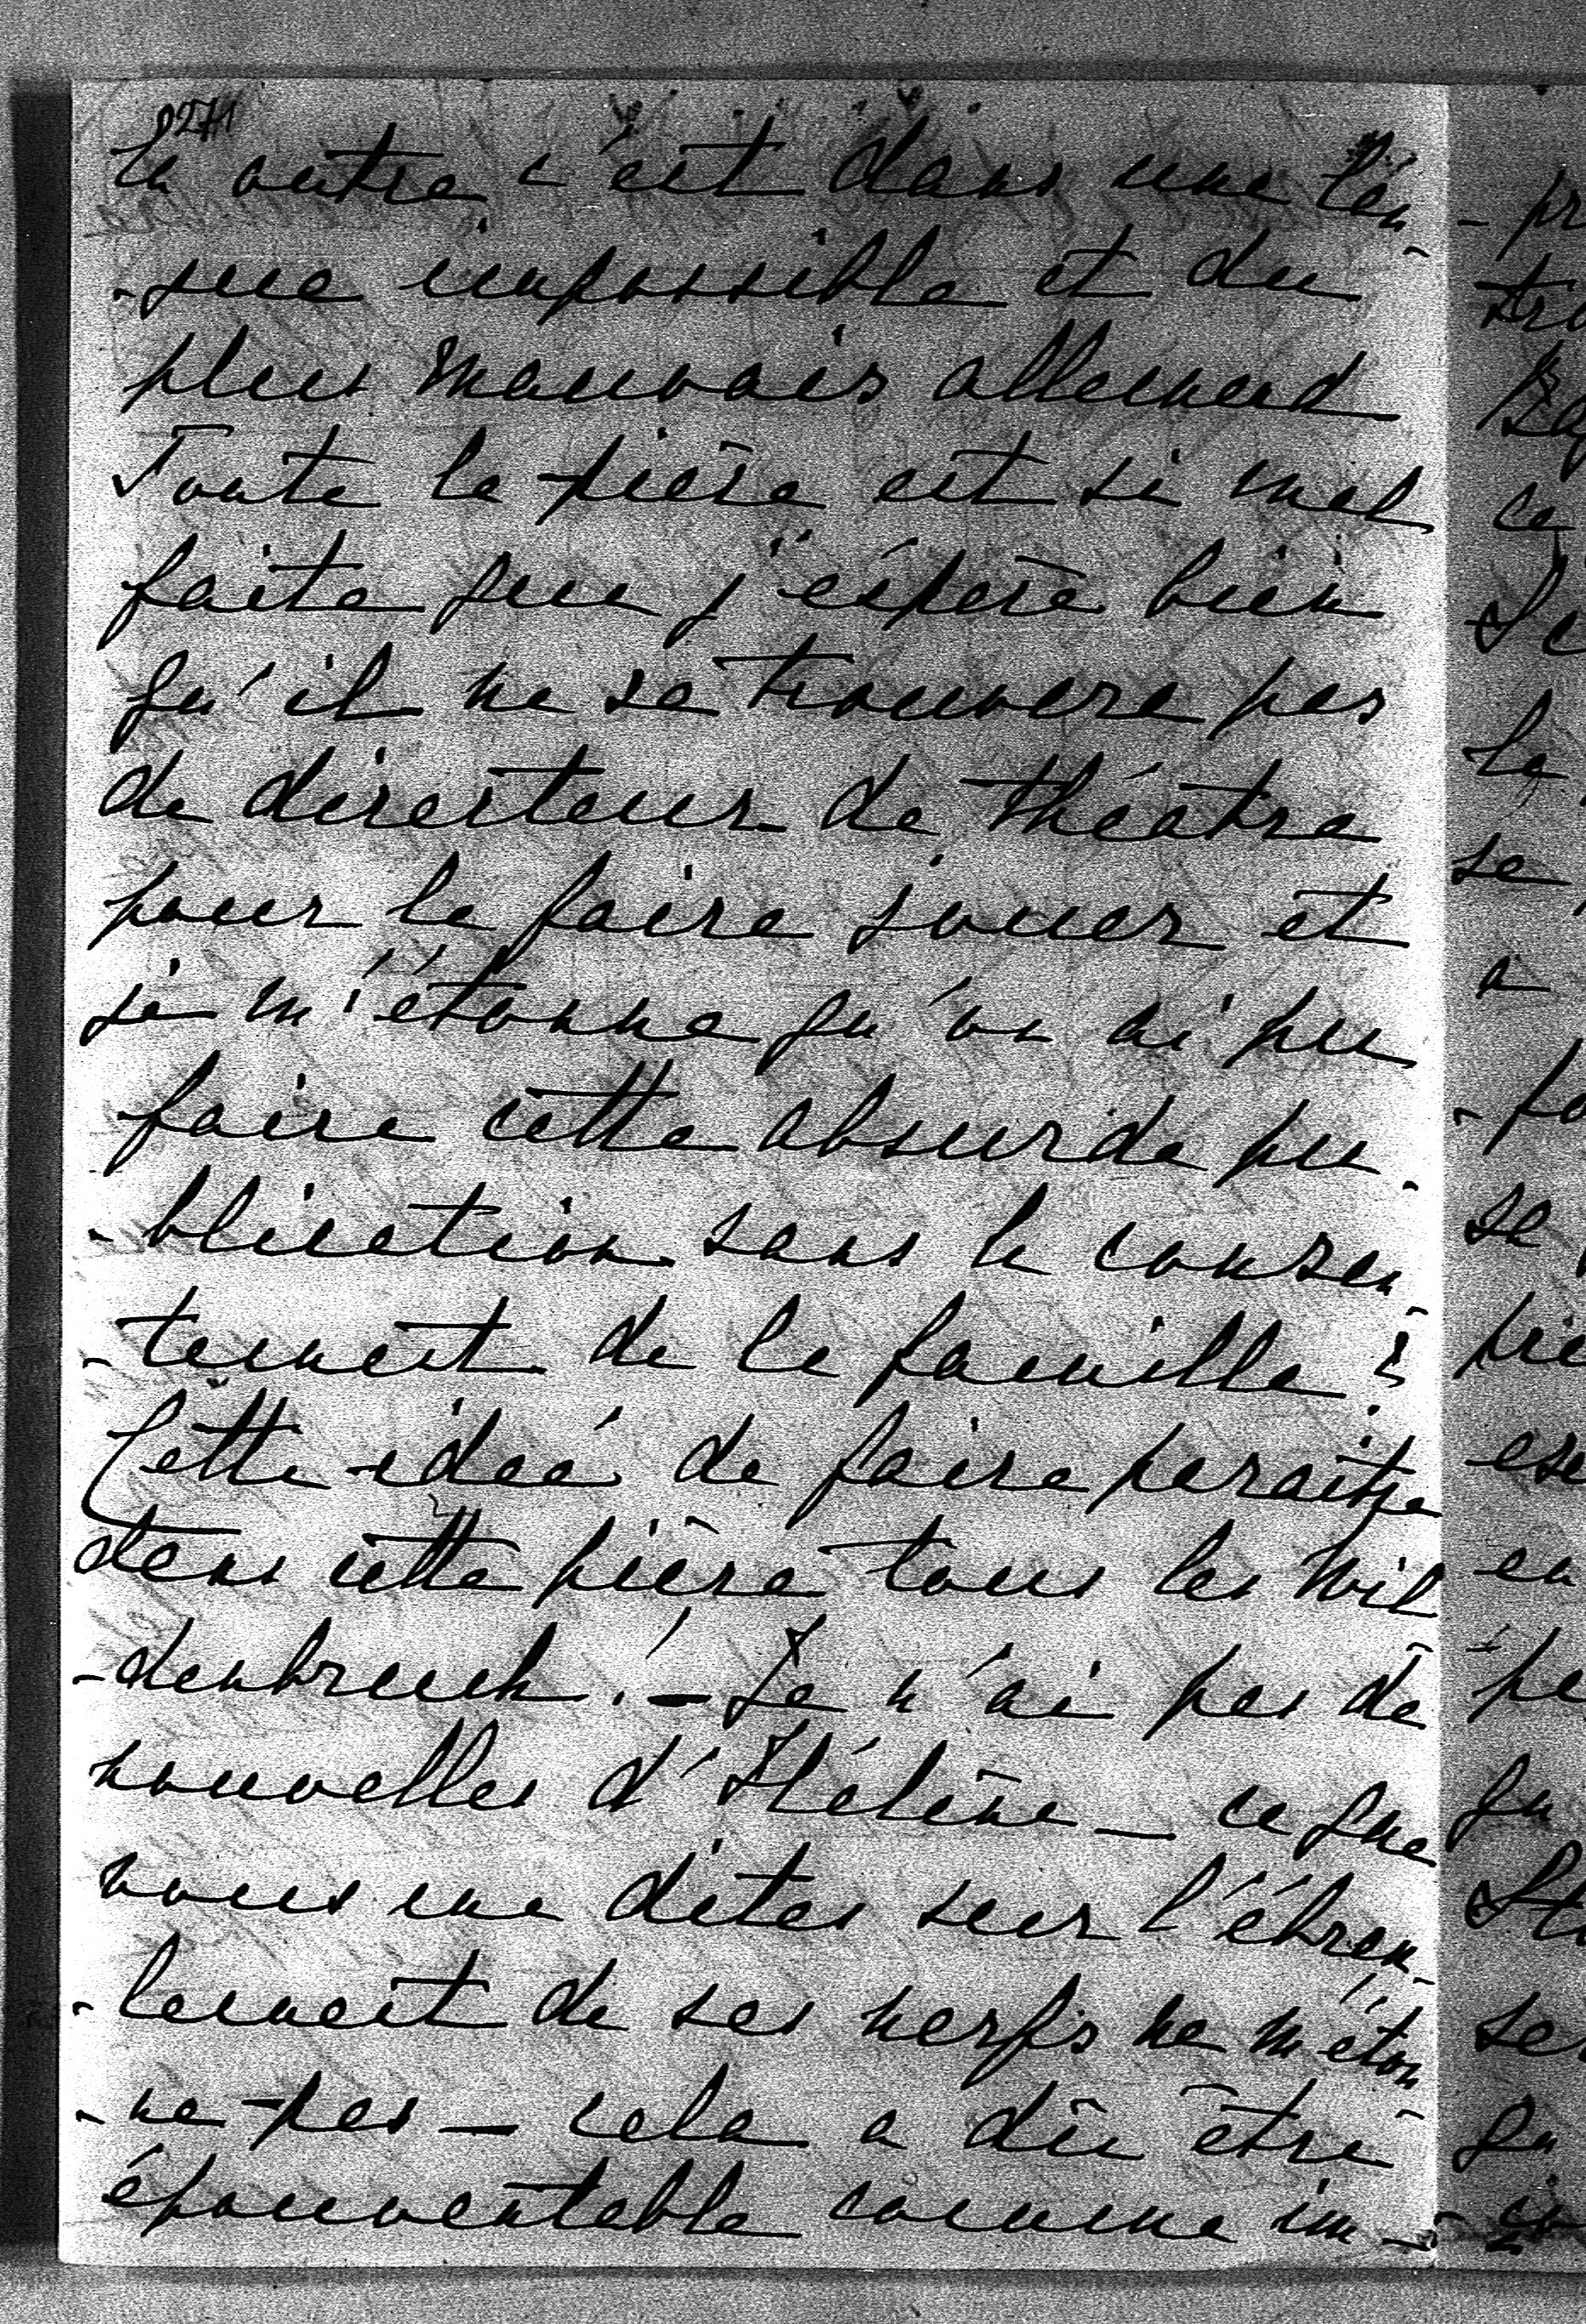 9271
En outre c'est dans une lan-
-gue impossible et du
plus mauvais allemand
Toute la pièce est si mal
faite que j'espère bien
qu'il ne se trouvera pas
de directeur de théâtre
pour la faire jouer et
je m'étonne qu'on ai pu
faire cette absurde pu-
-blication sans le consen-
-tement de la famille !
Cette idée de faire paraître
dans cette pièce tous les Wil
-denbruch ! - Je n'ai pas de
nouvelles d'Hélène - ce que
vous me dites sur l'ébran-
-lement de ses nerfs ne m'éton
-ne pas - cela a dû être
épouvantable comme im-